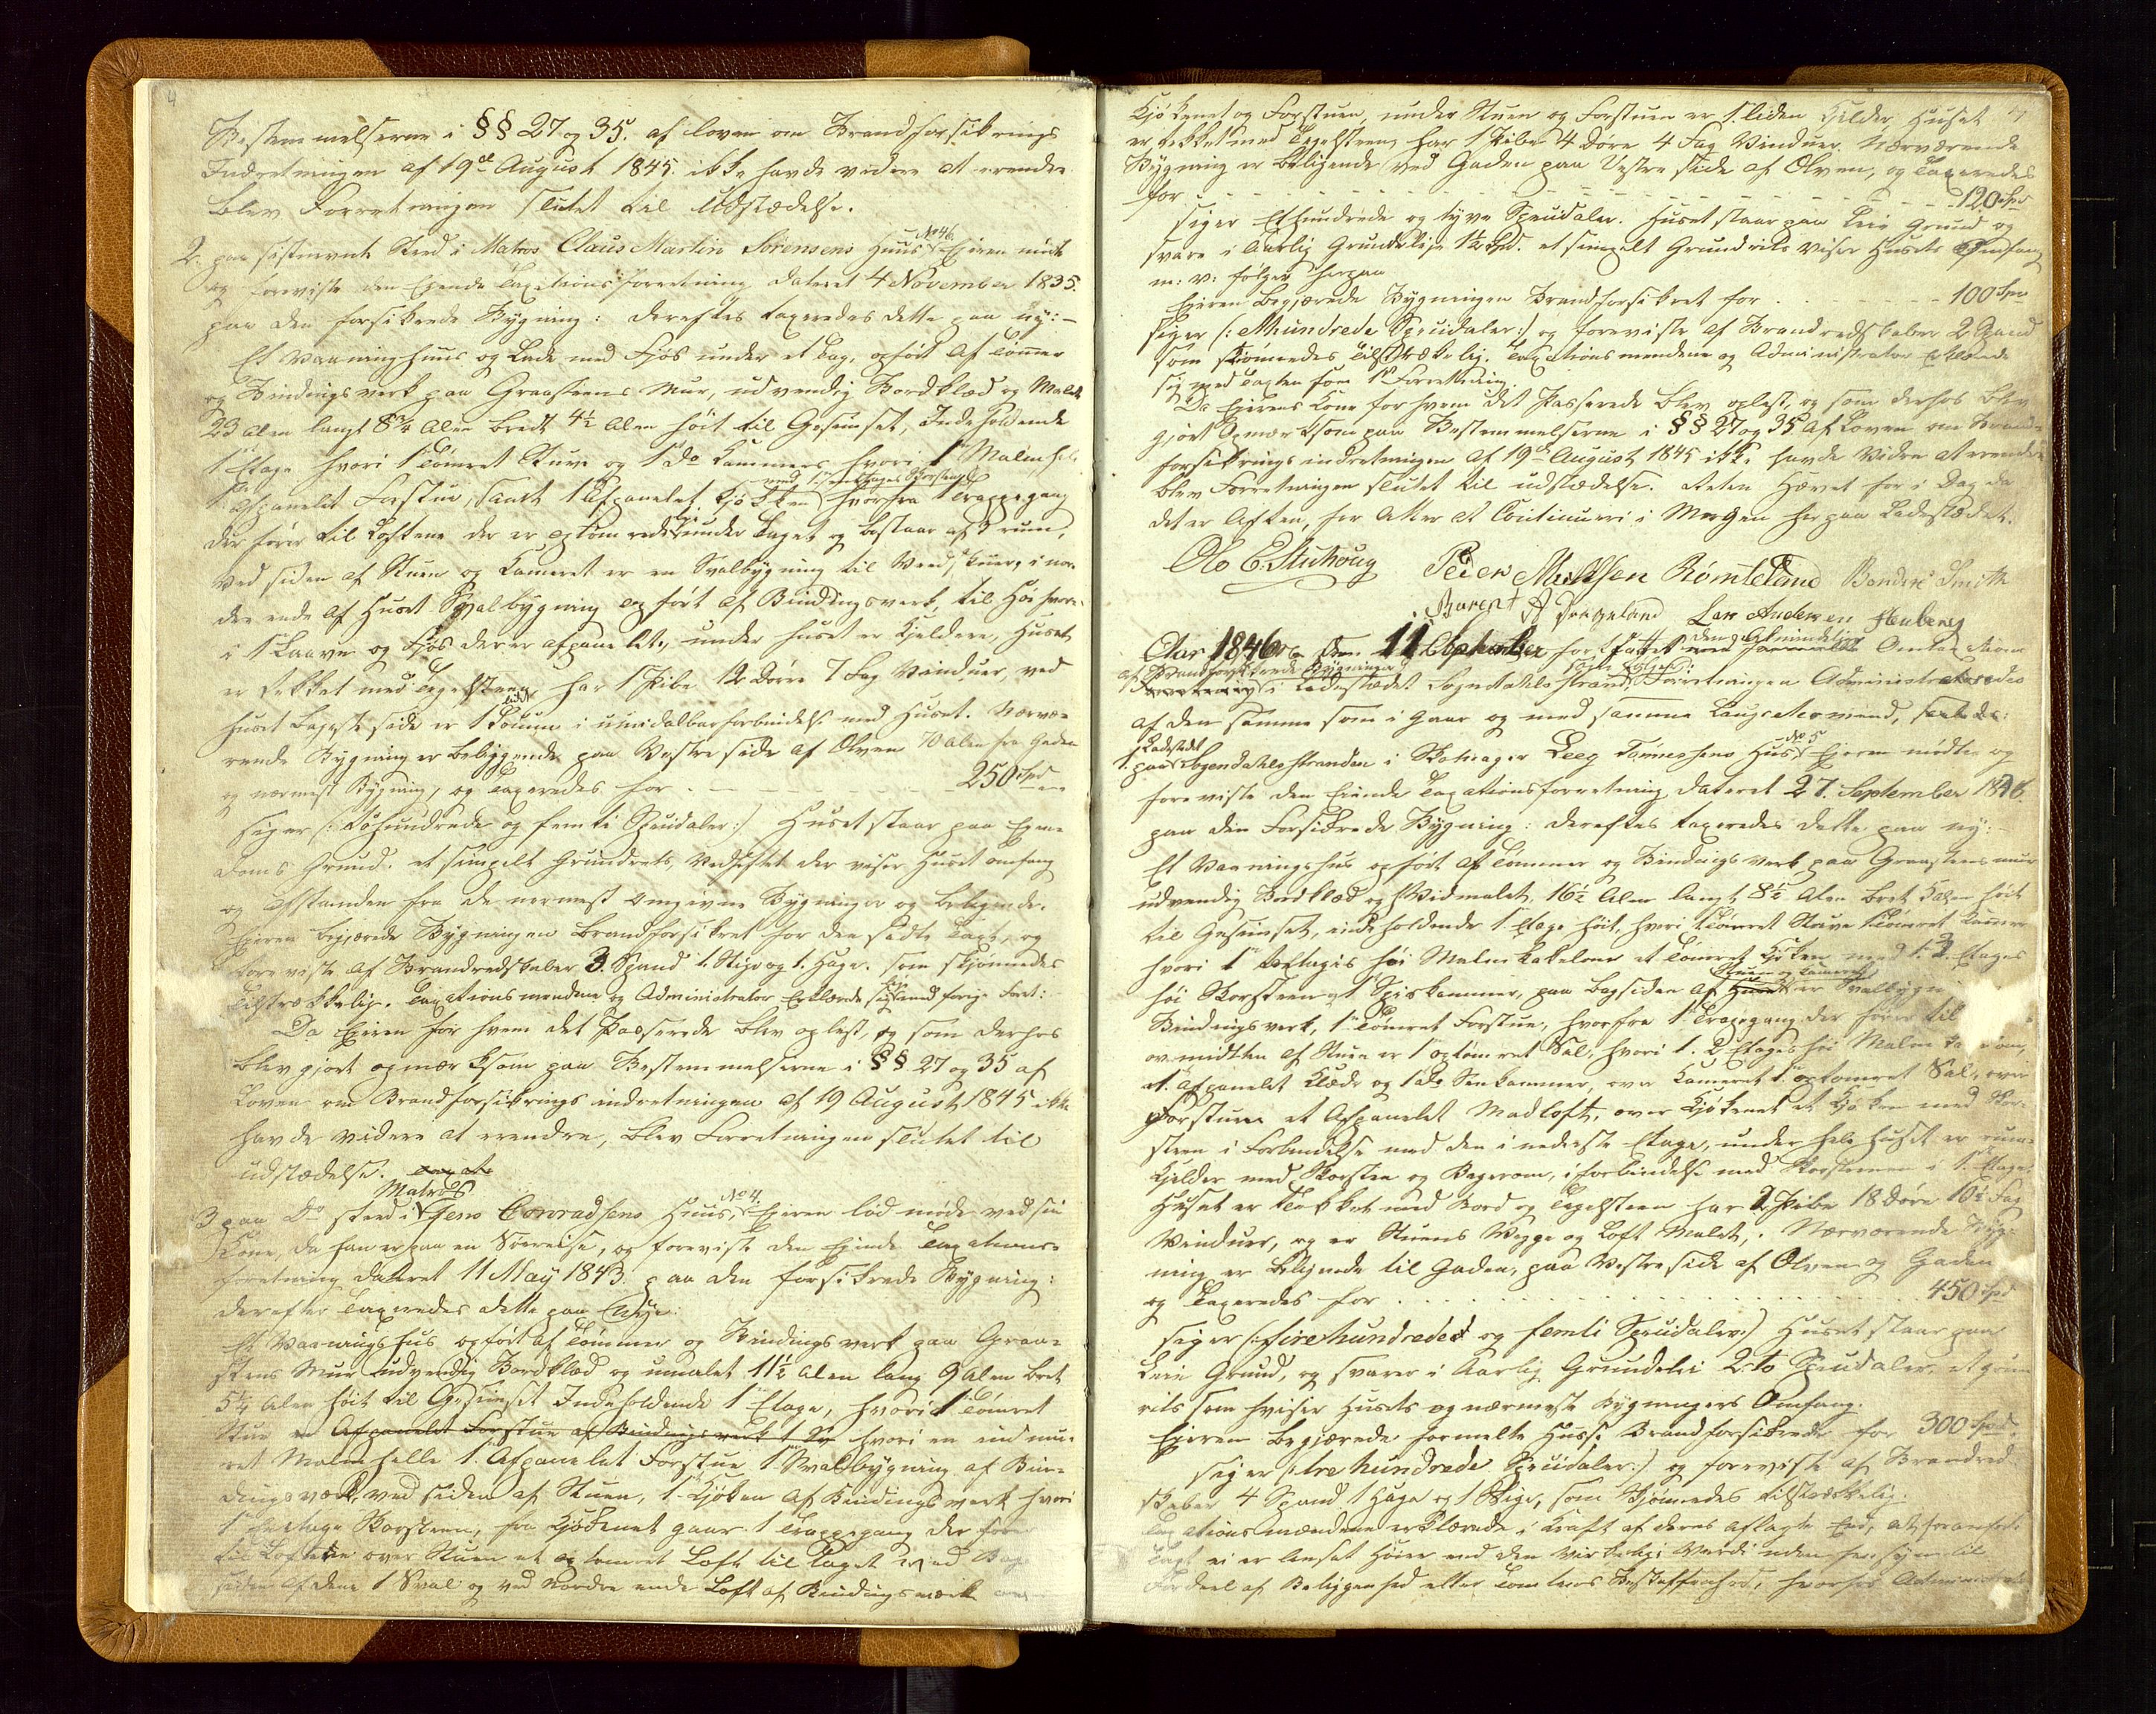 4
Bestemmelserne i §§ 27 og 35. af loven om Brandforsikrings
Indretningen af 19de August 1845. ikke havde videre at erendre
blev Forretningen sluttet til Udstædelse.
No 46
2. paa sistnevnte Sted i Matros Claus Martin Sørensens Huus Eieren mødte
og foreviste den Ejende Taxationsforretning dateret 4 November 1835.
paa den forsikrede Bygning: derefter taxeredes dette paa ny:-
Et Vaaninghuus og Lade med Fjøs under et Tag, opført af Tømmer
og Bindingsverk paa Graasteens Muur, udvendig Bordklæd og Malet
23 Alen langt 8¾ Alen bredt 4½ Alen høit til Gesimset, Indeholdende
1 Etage hvori 1 Tømret Stue og 1 Do Kammers hvori 1
1 Afpanelet Forstue, samt 1 Afpanelet Kjøkken hvorfra 1 Trappegang
der fører til Lofterne der er optømrede under Taget og bestaar af 3 rum,
Ved siden af Stuen og Kameret er en Svalbygning til Veed, i nor-
dre ende af Huset Svalbygning opført af Bindingsverk, til Høi hvor-
i 1 Laave og Fjøs der er afpanelet, under huset er Kjeldere, Huset
er tekket med Tegelsteen har 1 Pibe 12 Dørre 7 Fag Vinduer, ved
Huset Bageste side er 1 i umidelbar forbindelse med Huset. Nærvæ-
rende Bygning er beliggende paa Vestre side af Elven 70 Alen fra Gaden
og nærmest Bygning, og Taxeredes for . - - - - - 250 Spd
siger (: Tohundrede og femti Speidaler :) Huset staar paa Eien-
doms Grund. et simpelt Grundrids Vedheftet der viser Huset omfang
og Afstanden fra de nermest omgivne Bygninger og beliggende.
Eieren begjærede Bygningen brandforsikret for den fulde Taxt, og
foreviste af Brandredskaber 3. Spand 1. Stige og 1. Hage. som skjønnedes
Tilstrækkelig. Taxationsmendene og Administrator Erklærede sig som ved forrige Forr:
Da Eieren for hvem det Passerede blev oplest, og som derhos
blev gjort opmærksom paa Bestemmelserne i §§ 27 og 35 af
Loven om Brandforsikrings indretningen af 19 August 1845 ikke
havde videre at erendre, blev Forretningen sluttet til
udstædelse.
Matros No 4.
3 paa Do sted i Jens Conradsens Huus, Eieren lod møde ved sin
Kone, da han er paa en Søereise, og foreviste den Ejende Taxations-
forretning dateret 11 May 1843. paa den forsikrede Bygning:
derefter Taxeredes dette paa Nye:
Et Vaaningshus opført af Tømmer og Bindingsverk paa Graa-
stens Mur udvendig Bordklæd og umalet 11½ Alen lang 9 Alen bret
5¼ Alen høit til Gesimset Indeholdende 1 Etage, hvori 1 Tømret
Stue en Afpanelet Forstue af Bindingsverk 1 Sv hvori en indmu-
ret Malmhelle 1. Afpanelet Forstue 1 Svalbygning af Bin-
dingsværk ved siden af Stuen, 1 Kjøken af Bindingsverk hvori
1 Enetage Skorsteen, fra Kjøkenet gaar 1 Trappegang der fører
til Lofterne over Stuen et optømret Loft til Taget ved Bag-
siden af dene 1 Sval og ved Nordre ende Loft af Bindingsværk over
Kjøkenet og Forstuen, under Stuen og Forstuen er 1. liden Kjelder, Huset
er tekket med Tegelsteen, har 1 Pibe 4 Døre 4 Fag Vinduer. Nærværende
Bygning er beligende ved Gaden paa Vestre side af Elven, og Taxeredes
for - - - - - - 120 Spd
siger Ethundrede og tyve Speidaler. Huset staar paa Leie Grund og
svare i Aarlig Grundleje 1½ Spd. et simpelt Grundrids viser Husets Omfang
m: v: følger herpaa
Eieren begjærede Bygningen Brandforsikret for . - - - - - 100 Spd
siger (: Ethundrede Speidaler :) og foreviste af Brandredskaber 2 Spand
som skjønnedes Tilstrækelig. Taxationsmendene og Administrator Erklærede
sig med Taxten som 1ste Forretning.
Da Eierens Kone for hvem det Passerede blev oplest, og som derhos blev
gjort Opmærksom paa Bestemmelserne i §§ 27 og 35 af Loven om Brand-
forsikrings indretningen af 19de August 1845 ikke havde Vidre at erendre
blev Forretningen sluttet til udstædelse. Reten Hævet for i Dag da
det er Aften, for Atter at Continuere i Morgen her paa Ladestædet.
Ole E. Stuhoug Peder Mikkelsen Rømteland Bendix Smith
Barent A Daageland Lars Andersen Stenberg
Aar 1846 den 11 September fortsattes den Almindelige Omtaxation
af Brandforsikrede Bygninger
i Ladestædet Sogndahls Strand, Forretningen Administreredes
af den samme som i gaar og med samme Laugrettesmænd, saaledes:
Ladestedet No 5
1. paa Sogendahls Stranden i Skomager Leeg Tønnesens Hus Eieren mødte og
foreviste den Eiende Taxationsforretning dateret 27. September 1836
paa den Forsikrede Bygning: derefter taxeredes dette paa ny:-
Et Vaaningshus opført af Tømmer og Bindingsverk paa Graasteens mur
udvendig Bordklæd og Hvidmalet, 16½ Alen langt 8½ Alen bret Alen høit
til Gesimset, indeholdende 1 Etage høit, hvori 1 Tømret Stue 1 Tømret Kammer
hvori 1 2 Etages høi Malm Kakelovn et Tømret Kjøken med 1. 2 Etages
høi Skorsteen et Spiskammer, paa Bagsiden af Stuen og Kameret er Svalbygni
Bindingsverk, 1 Tømret Forstue, hvorfra 1 Trapegang der fører til
ov midten af Stuen er 1 optømret Sal, hvori 1. 2 Etages høi Malm
et Afpanelet Klæde og 1 Do Senkammer, over Kameret 1 optomret Sal, over
Forstuen et Afpanelet Madloft, over Kjøkenet et Kjøken med Skor-
steen i Forbindelse med den i nederste Etage, under hele huset er rum-
Kjelder med Skorsten og Bagerovn, i forbindelse med Skorstenen i 1 Etage.
Huset er Tekket med Bord og Tegelsteen har 2 Pibe 18 Døre 10½ Fag
Vinduer, og er Stuens Vegge og Loft Malet,. Nærværende Byg-
ning er beligende til Gaden, paa Vestre side af Elven og Gaden
og Taxeredes for . . . . . . 450 Spd
siger (: fire hundrede og femti Speidaler :) Huset staar paa
Leie Grund, og svarer i Aarlig Grundeleie 2 to Speidaler. et grun
rids som hviser Husets og nærmeste Bygningers Omfang.
Eieren begjærede formelte Huse Brandforsikrede for 300 Spd.
siger (: tre hundrede Speidaler :) og foreviste af Brandred-
skaber 4 Spand 1 Hage og 1 Stige, som skjønnedes tilstrækkelig.
Taxationsmændene erklærede i Kraft af deres aflagte Eed, at foranførte
Taxt ei er Ansat Høiere end den virkelige Værdi uden hensyn til
Fordeel af Beliggenhed eller Tomtens Beskaffenhed, hvorhos Administrator